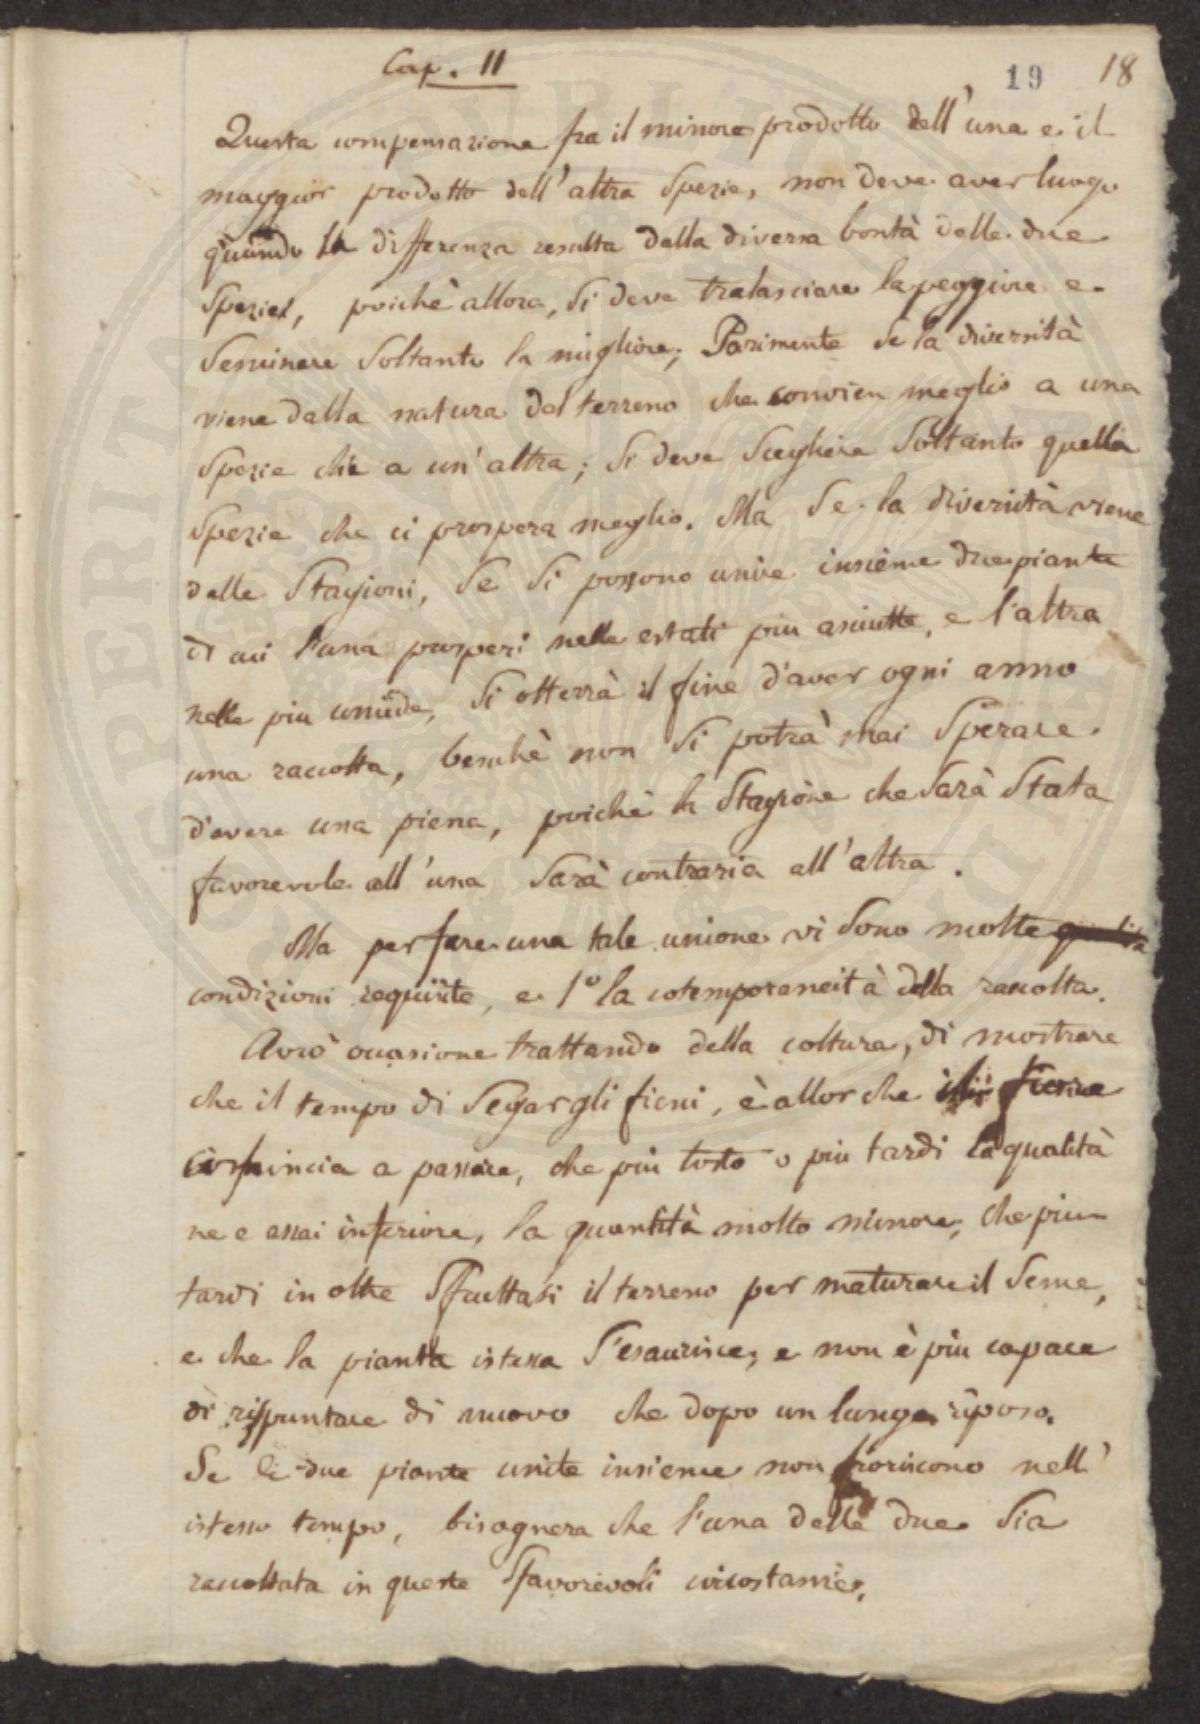 Cap. II
19 18
Questa compensazione fra il minore prodotto dell'una e il
maggior prodotto dell'altra spezie, non deve aver luogo
quando la differenza resulta dalla diversa bontà delle due
spezie, poichè allora, si deve tralasciare la peggiore e
seminare soltanto la migliore; Parimente se la diversità
viene dalla natura del terreno che convien meglio a una
spezie che a un'altra; si deve scegliere soltanto quella
spezie che ci prospera meglio. Ma se la diversità viene
dalle stagioni, se si possono unire insieme due piante
di cui l'una prosperi nelle estati più asciutte, e l'altra
nelle più umide, si otterrà il fine d'aver ogni anno
una raccolta, benchè non si potrà mai sperare
d'avere una piena, poichè la stagione che sarà stata
favorevole all'una sarà contraria all'altra.
Ma per fare una tale unione vi sono molte qualità
condizioni requisite, e 1º la cotemporaneità della raccolta.
Avrò occasione trattando della coltura, di mostrare
che il tempo di segar gli fieni, è allorche il fiore
comincia a passare, che più tosto o più tardi la qualità
ne e assai inferiore, la quantità molto minore; che più
tardi in oltre sfruttasi il terreno per maturare il seme,
e che la pianta istessa s'esaurisce; e non è più capace
di rispuntare di nuovo che dopo un lungo riposo.
Se le due piante unite insieme non fioriscono nell'
istesso tempo, bisognera che l'una delle due sia
raccoltata in queste sfavorevoli circostanze.